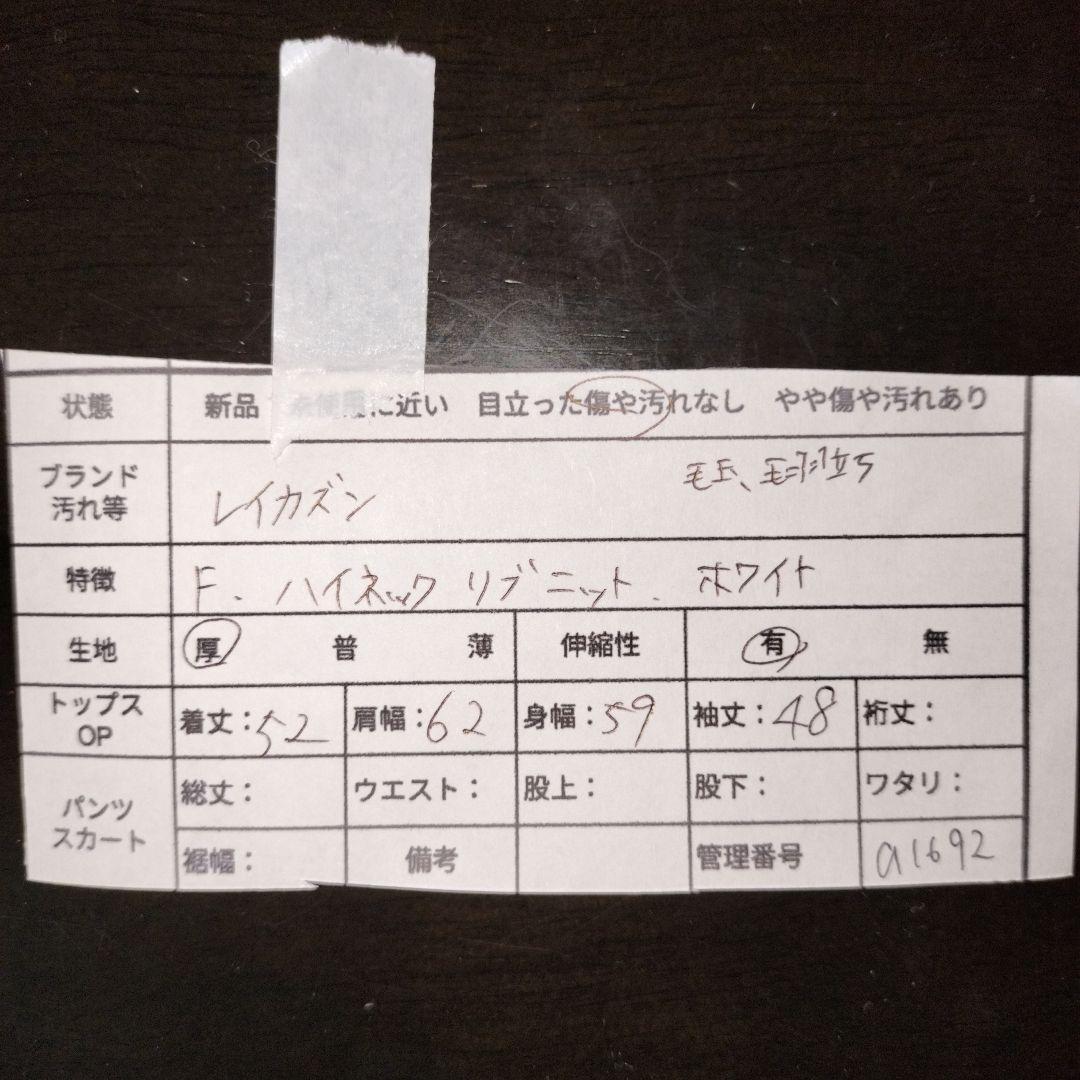 状態 新品 未使用に近い 目立った傷や汚れなし やや傷や汚れあり
ブランド
汚れ等 レイカズン 毛玉、毛羽立ち
特徴 F. ハイネック リブニット. ホワイト
生地 厚 普 薄 伸縮性 有 無
トップス
OP 着丈:52 肩幅:62 身幅:59 袖丈:48 裄丈:
パンツ
スカート 総丈: ウエスト: 股上: 股下: ワタリ:
裾幅: 備考 管理番号 a1692